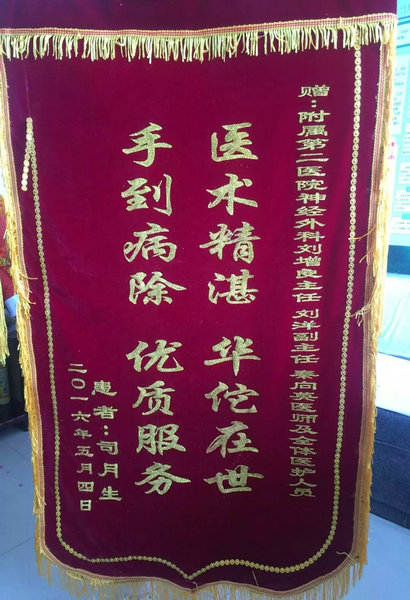 赠：附属第二医院神经外科刘增良主任 刘洋副主任 秦向英医师及全体医护人员
医术精湛 华佗在世
手到病除 优质服务
患者：司月生
二〇一六年五月四日